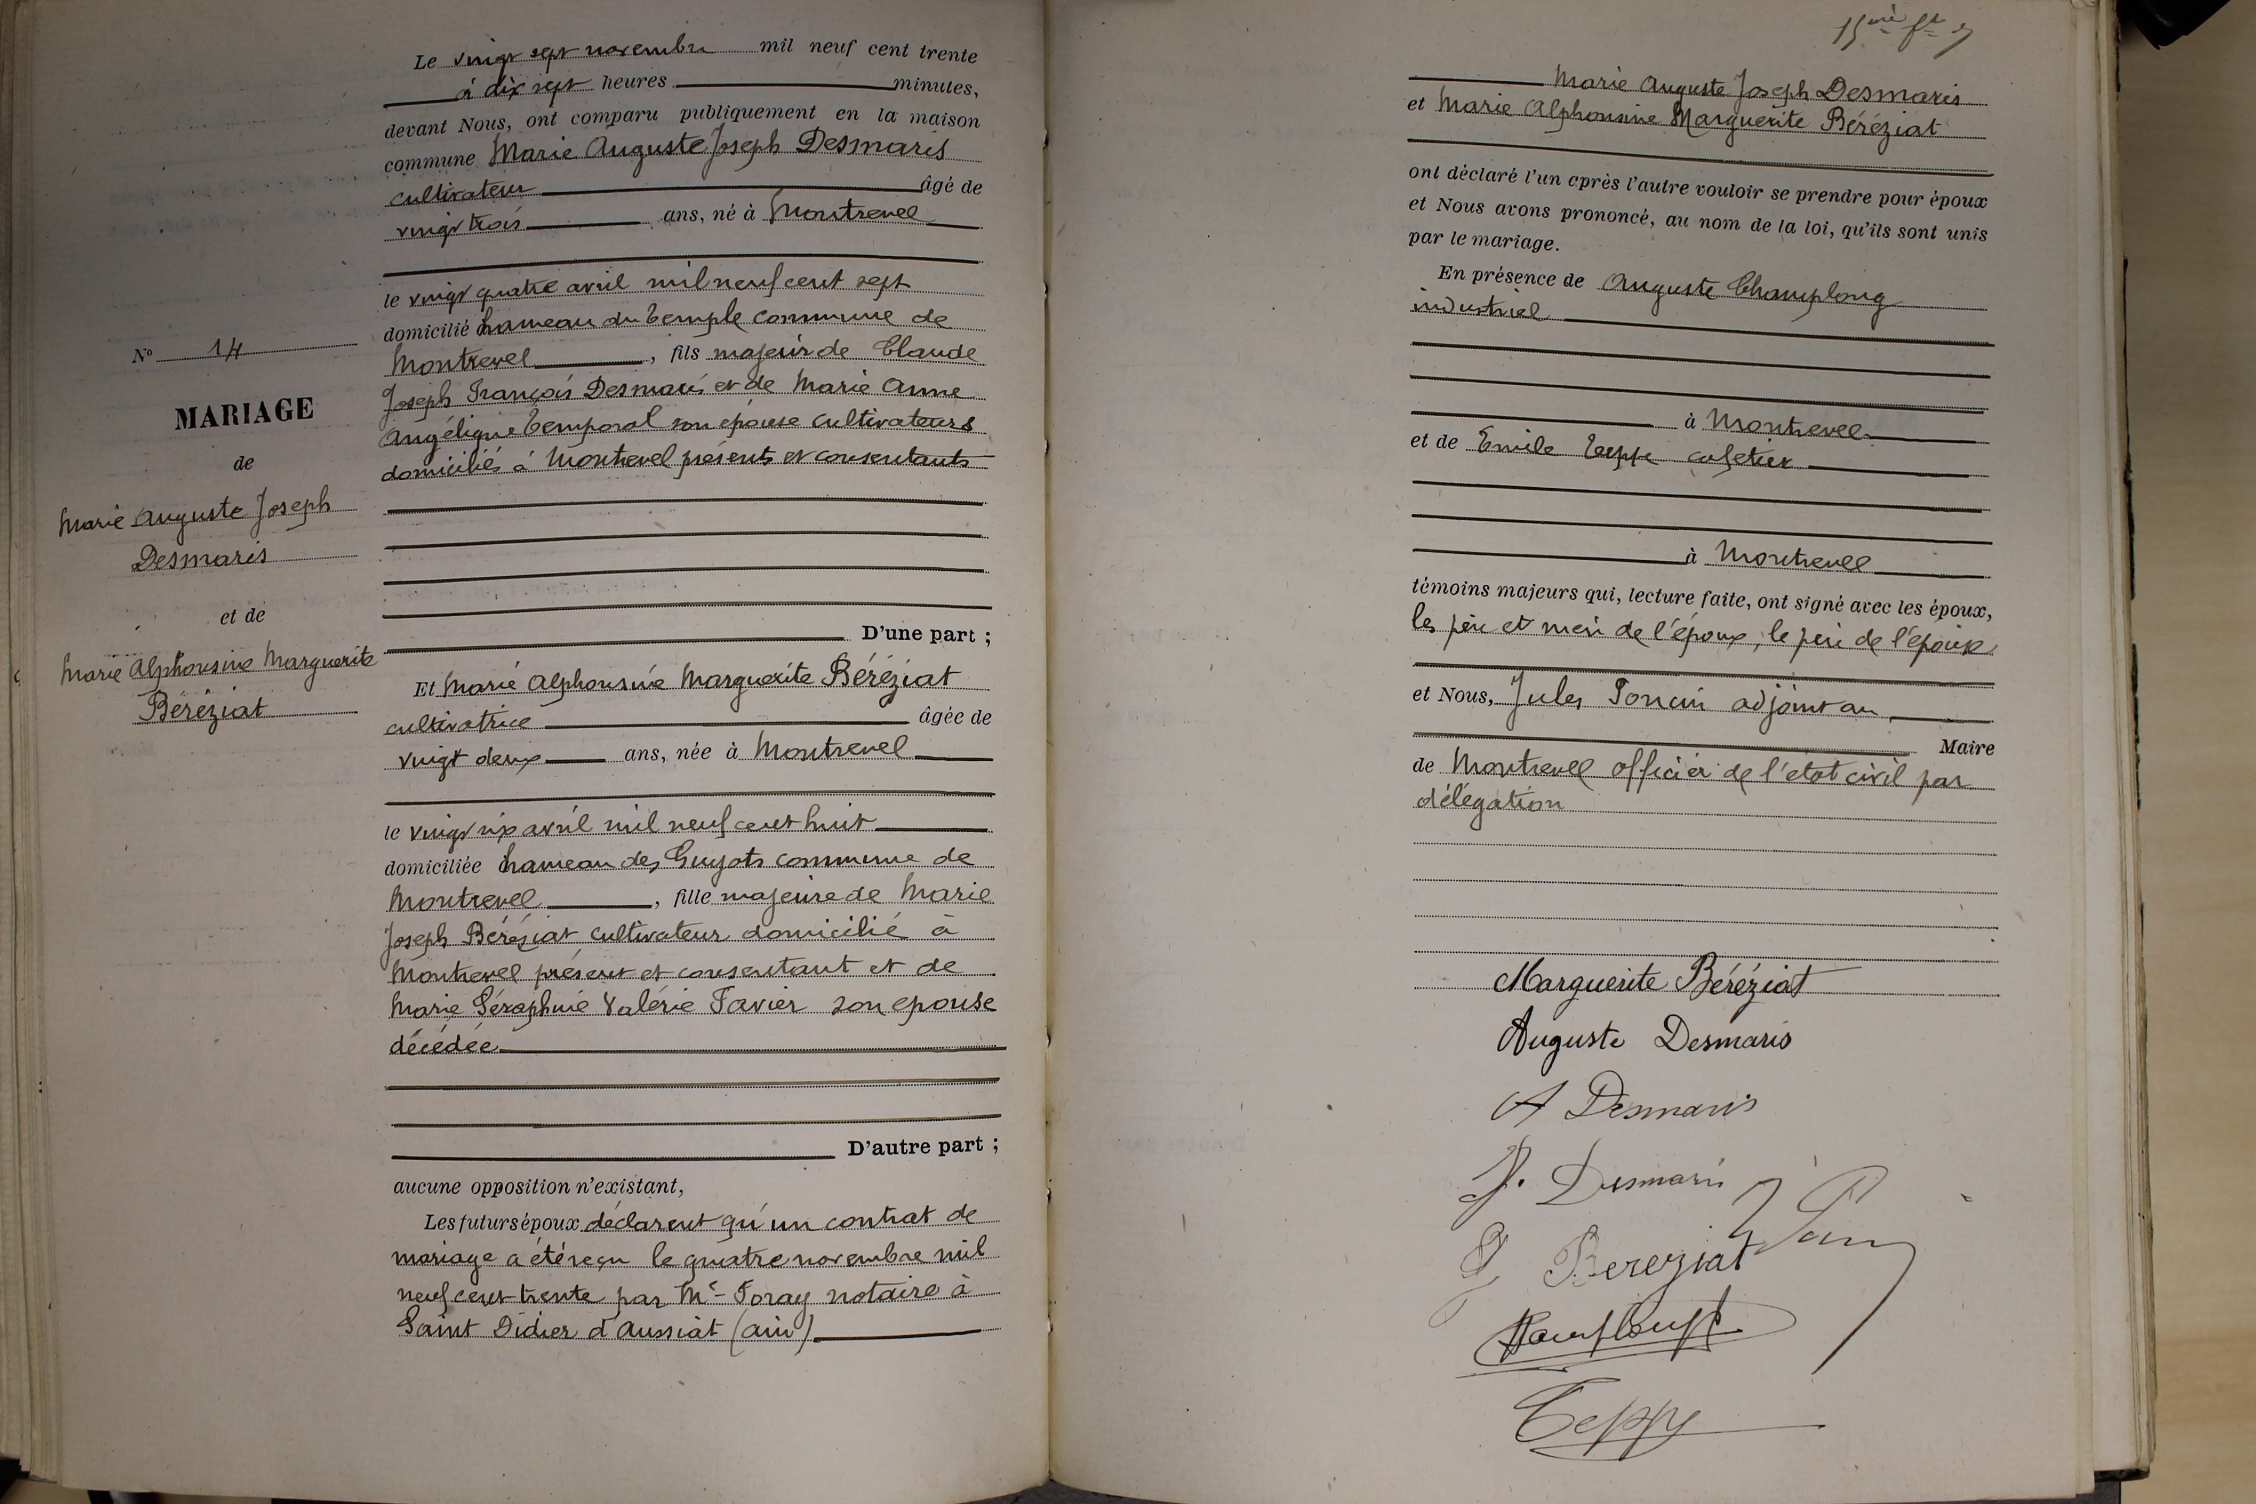 Le vingt sept novembre mil neuf cent trente
à dix sept heures minutes,
devant Nous, ont comparu publiquement en la maison
commune Marie Auguste Joseph Desmaris
cultivateur âgé de
vingt trois ans, né à Montrevel
le vingt quatre avril mil neuf cent sept
domicilié hameau du Temple commune de
Montrevel, fils majeur de Claude
Joseph François Desmaris et de Marie Anne
Angélique Temporal son épouse cultivateurs
domiciliés à Montrevel présents et consentants
D'une part ;
Nº 14
MARIAGE
de
Marie Auguste Joseph
Desmaris
et de
Marie Alphonsine Marguerite
Béréziat
Et Marie Alphonsine Marguerite Béréziat
cultivatrice âgée de
vingt deux ans, née à Montrevel
le vingt six avril mil neuf cent huit
domiciliée hameau des Guyots commune de
Montrevel, fille majeure de Marie
Joseph Béréziat cultivateur domicilié à
Montrevel présent et consentant et de
Marie Séraphine Valérie Favier son epouse
décédée
D'autre part ;
aucune opposition n'existant,
Les futurs époux déclarent qu'un contrat de
mariage a été reçu le quatre novembre mil
neuf cent trente par Me Foray notaire à
Saint Didier d'Aussiat (Ain)
Marie Auguste Joseph Desmaris
et Marie Alphonsine Marguerite Béréziat
ont déclaré l'un après l'autre vouloir se prendre pour époux
et Nous avons prononcé, au nom de la loi, qu'ils sont unis
par le mariage.
En présence de Auguste Champlong
industriel
à Montrevel
et de Emile Teppe cafetier
à Montrevel
témoins majeurs qui, lecture faite, ont signé avec les époux,
les père et mère de l'époux, le père de l'épouse
et Nous, Jules Poncin adjoint au
Maire
de Montrevel officier de l'état civil par
délégation
Marguerite Béréziat
Auguste Desmaris
A Desmaris
J. Desmaris
J Bereziat
Champlong
Teppe